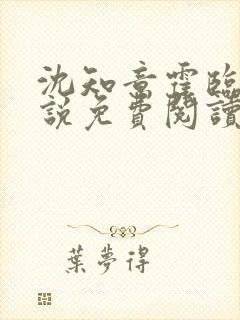 沈知意霍臨
說免費閱讀
葉夢得